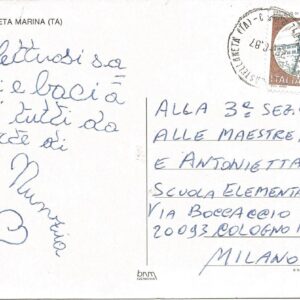 ETA MARINA (TA)
ettuosi sa
i e baci a
tutti da
di
Nunzia
B
ALLA 3ª SEZ.
ALLE MAESTRE
E ANTONIETTA
SCUOLA ELEMENTA
VIA BOCCACCIO
20093 COLOGNO
MILANO
ITALIA
bnm